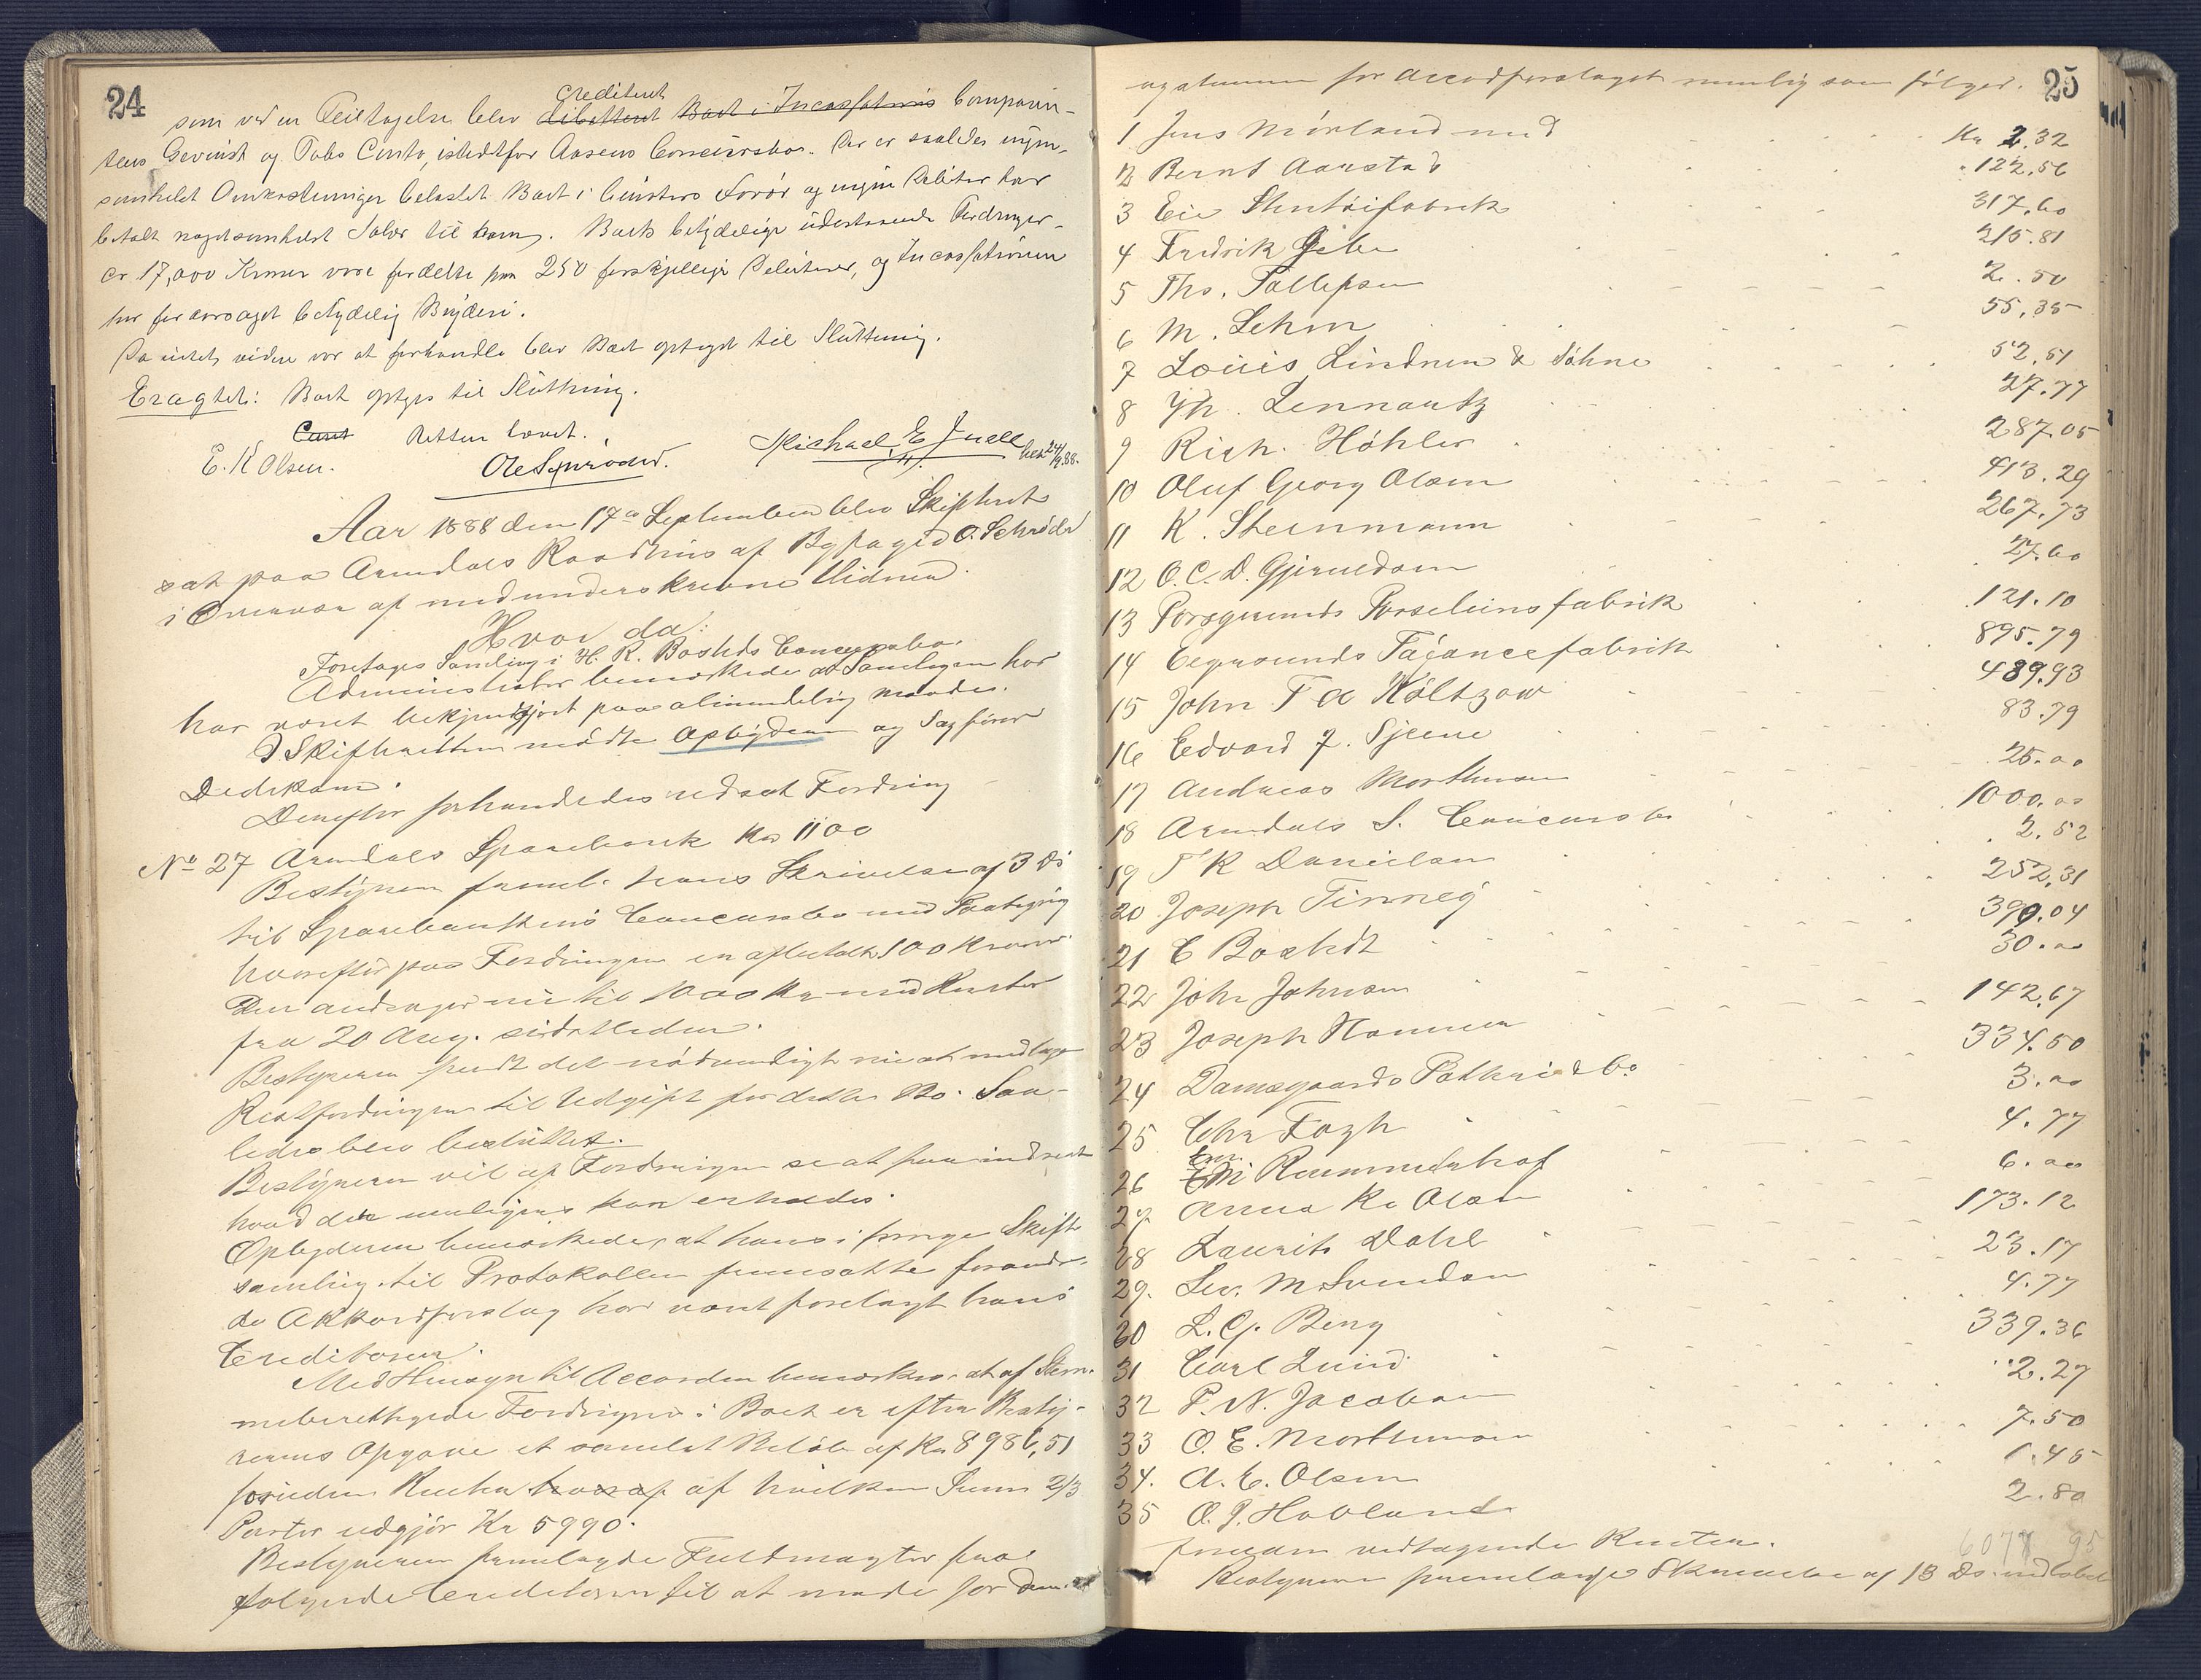 24
som ved en Feiltagelse blev debiteret crediteret Boet i Incassations Compagni-
tens Gevinst og Tabs Conto, istedetfor Aasens Concursbo. Der er saaledes ingen-
somhelst Omkostninger belastet Boet i Bensters Favør og ingen Debitor har
betalt nogetsomhelst Salær til ham. Boets betydelige udestaaende Fordringer
cr 17,000 Kroner vare fordelte paa 250 forskjellige Debitorer, og Incassationen
har foraarsaget betydelig Bryderi.
Da intet videre var at forhandle blev Boet optaget til Slutning.
Eragtet: Boet optages til Slutning.
Retten hævet.
E. K Olsen. OleSchrøder. Michael E Juell
Aar 1888 den 17de September blev Skifteret
sat paa Arendals Raadhus af Byfoged O. Schrøder
i Overvær af medunderskrevne Vidner.
Hvor da:
Foretages Samling i H. R. Bostedts Concursbo.
Administrator bemærkede at Samlingen har
har været bekjendtgjort paa almindelig Maade.
I Skifteretten mødte Opbyderen og Sagfører
Dedekam.
Derefter forhandledes udsat Fordring
No 27 Arendals Sparebank Kr 1100
Bestyreren freml. hans Skrivelse af 3 ds
til Sparebankens Concursbo med Paategning
hvorefter paa Fordringen er afbetalt 100 Kroner
Den andrager nu til 1000 Kr med Renter
fra 20 Aug. sidstleden.
Bestyreren fandt det nødvendigt nu at medtage
Restfordringen til Udgift for dette Bo. Saa-
ledes blev besluttet.
Bestyreren vil af Fordringen se at faa inddrevet
hvad der muligens kan erholdes.
Opbyderen bemærkede, at hans i forrige Skifte
samling til Protokollen fremsatte forandre-
de Akkordforslag har været forelagt hans
Creditorer.
Med Hensyn til Accorden bemærkes, at af Stem-
meberettigede Fordringer i Boet er efter Besty-
rerens Opgave et samlet Beløb af Kr 8986,51
foruden Renter hvoraf af hvilken Sum 2/3
Parter udgjør Kr 5990.
Bestyreren fremlagde Fuldmagter fra
følgende Creditorer til at møde for dem
25
og stemme for Accordforslaget nemlig som følger.
1 Jens Mørland med Kr 2,32
2 Bernt Aarstad 122,56
3 Eie Stentøifabrik 317,60
4 Fredrik Gebe 215.81
5 Ths. Tallefsen 2.50
6 M. Lehm 55,35
7 Louis Lindner & Söhne 52,51
8 Jh. Lennartz 27.77
9 Rich. Höhler 287.05
10 Oluf Georg Olsen 413.29
11 K. Steinmann 267,73
12 O. C. D. Gjeruldsen 27.60
13 Porsgrunds Porselænsfabrik 121.10
14 Egersunds Fajancefabrik 895.79
15 John F a Költzow 489.93
16 Edvard J. Tjeene 83.79
17 Andreas Mortensen 25.00
18 Arendals S. Concursbo 1000.00
19 T K Danielsen 2.52
20 Joseph Finney 252,31
21 C Bostedt 390.04
22 John Johnsen 30.00
23 Joseph Hannevn 142,67
24 Damsgaards Pottrie & Co 334.50
25 Chr Fogh 3.00
26 Em. Rummelhof 4.77
27 Anna K. Olsen 6.00
28 Laurits Dahl 173.12
29. Sev. M Svendsen 23.17
30 L. C. Berg 4.77
31 Carl Lund 339.36
32 P. N. Jacobsen 2.27
33 O. E. Mortensen 7.50
34. A. E. Olsen 1.45
35 O. J. Hovland 2.80
foruden vedtagende Renter. 6077 95
Bestyreren fremlagde Skrivelse af 13 Ds. indløbet